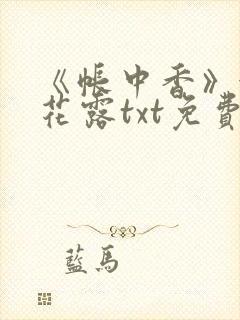 《帐中香》
花露txt免費
藍馬